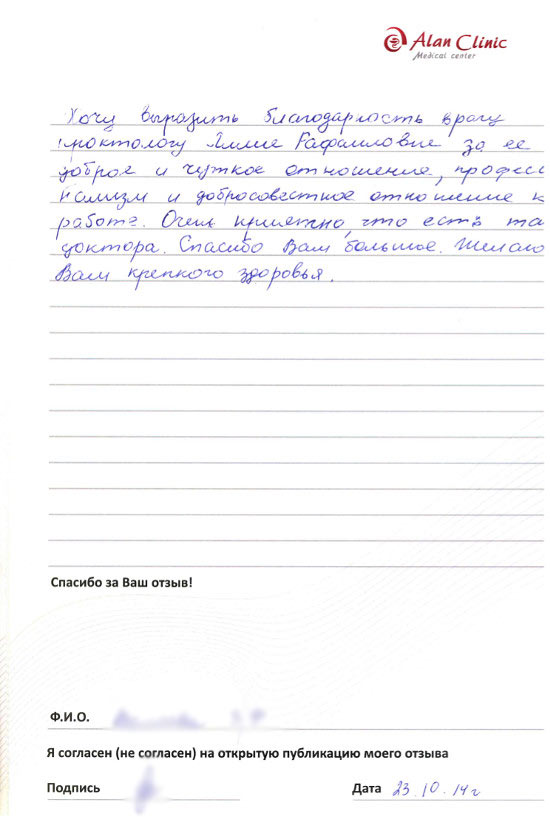 Alan Clinic
Medical center
Хочу выразить благодарность врачу
проктологу Рафаиловне за ее
доброе и чуткое отношение, професс
нализм и добросовестное отношение к
работе. Очень приятно, что есть та
доктора. Спасибо Вам большое. Желаю
Вам крепкого здоровья.
Спасибо за Ваш отзыв!
Ф.И.О.
Я согласен (не согласен) на открытую публикацию моего отзыва
Подпись
Дата 23.10.14г